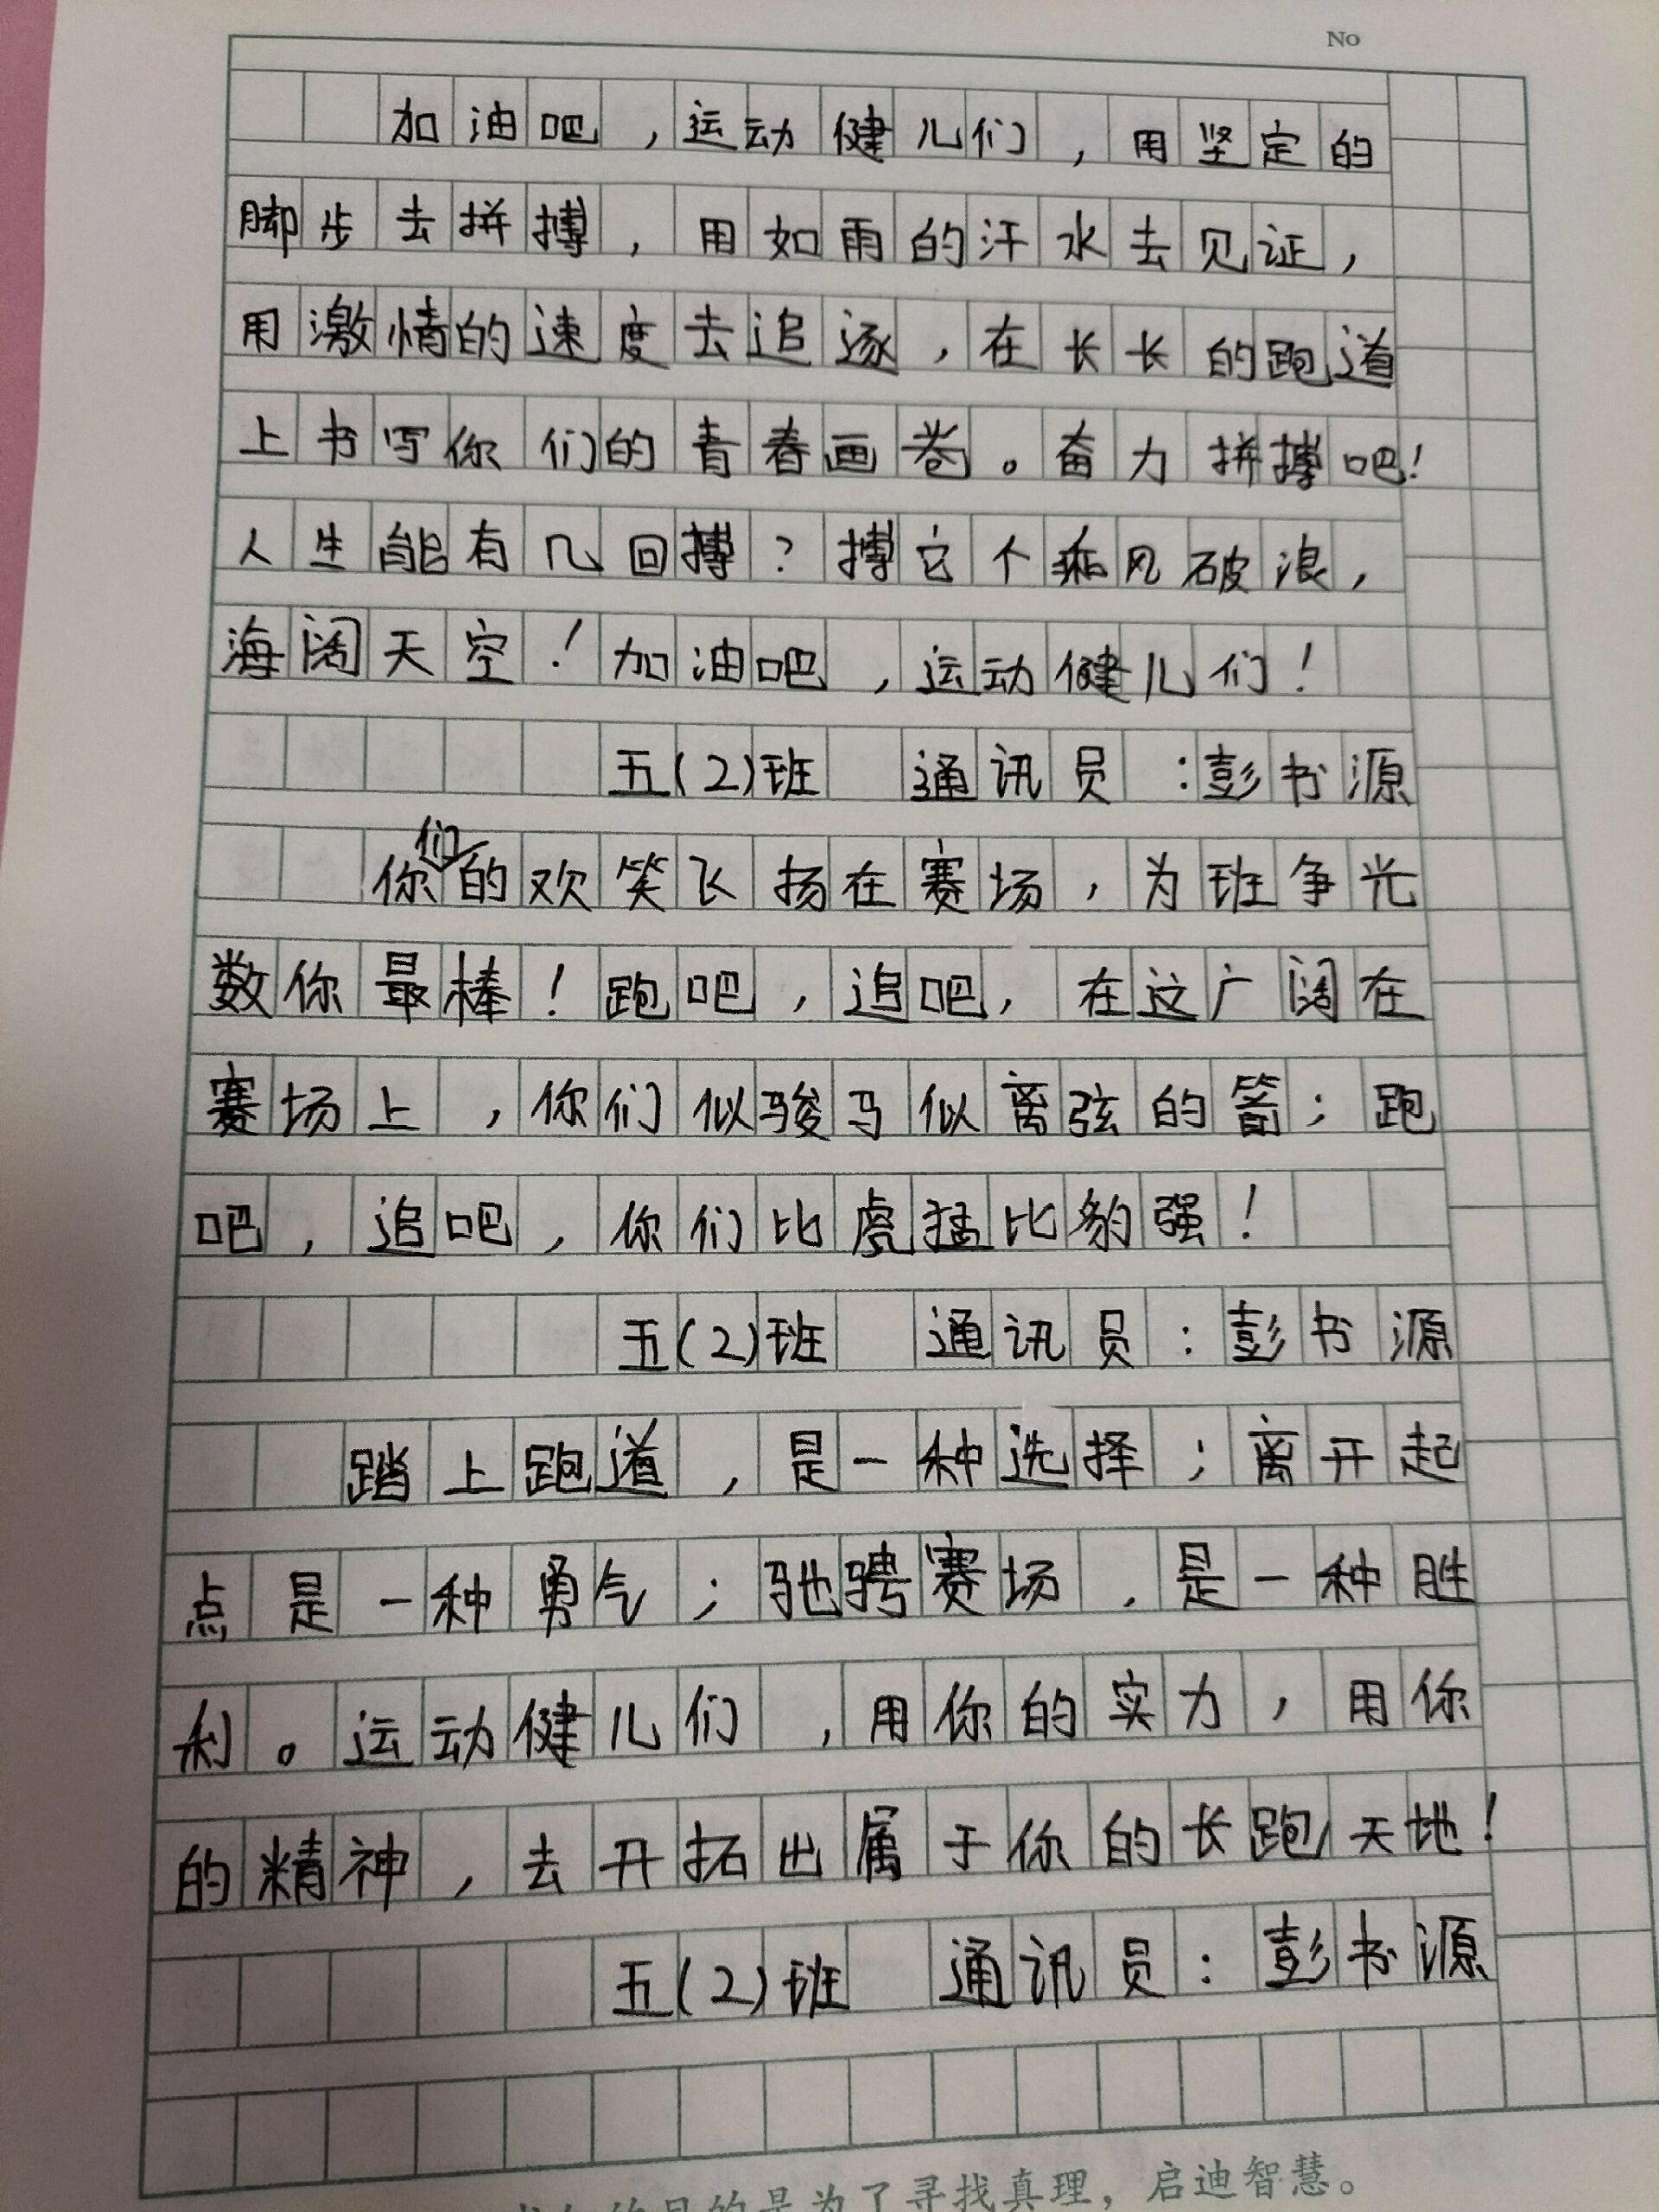 No
加油吧，运动健儿们，用坚定的
脚步去拼搏，用如雨的汗水去见证，
用激情的速度去追逐，在长长的跑道
上书写你们的青春画卷。奋力拼搏吧！
人生能有几回搏？搏它个乘风破浪，
海阔天空！加油吧，运动健儿们！
五(2)班 通讯员：彭书源
你们的欢笑飞扬在赛场，为班争光
数你最棒！跑吧，追吧，在这广阔在
赛场上，你们似骏马似离弦的箭；跑
吧，追吧，你们比虎猛比豹强！
五(2)班 通讯员：彭书源
踏上跑道，是一种选择；离开起
点是一种勇气；驰骋赛场，是一种胜
利。运动健儿们，用你的实力，用你
的精神，去开拓出属于你的长跑天地！
五(2)班 通讯员：彭书源
的目的是为了寻找真理，启迪智慧。